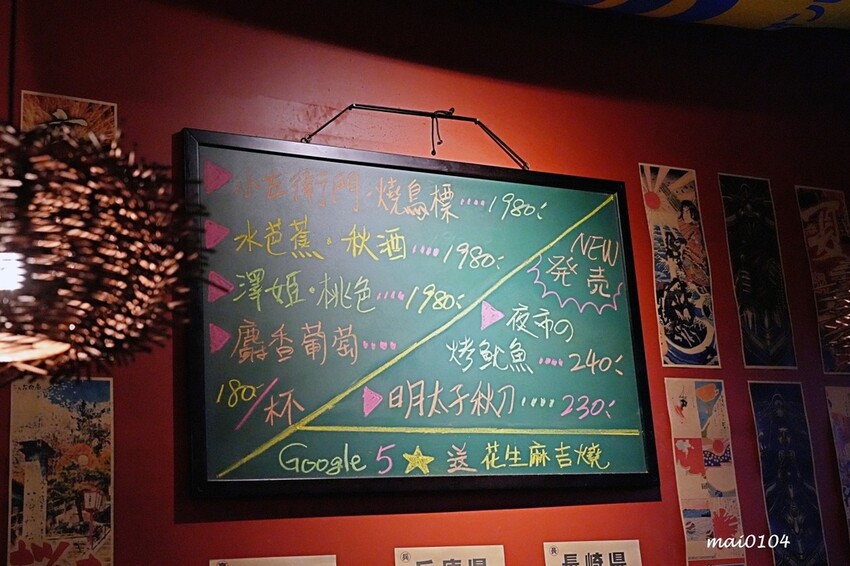 小左衛門・燒鳥標 1980.-
水芭蕉・秋酒 1980.-
澤姬・桃色 1980.-
麝香葡萄
180/杯
NEW
発売
夜市の
烤魷魚 240.-
明太子秋刀 230.-
Google 5 送 花生麻吉燒
兵庫県
長崎県
mai0104